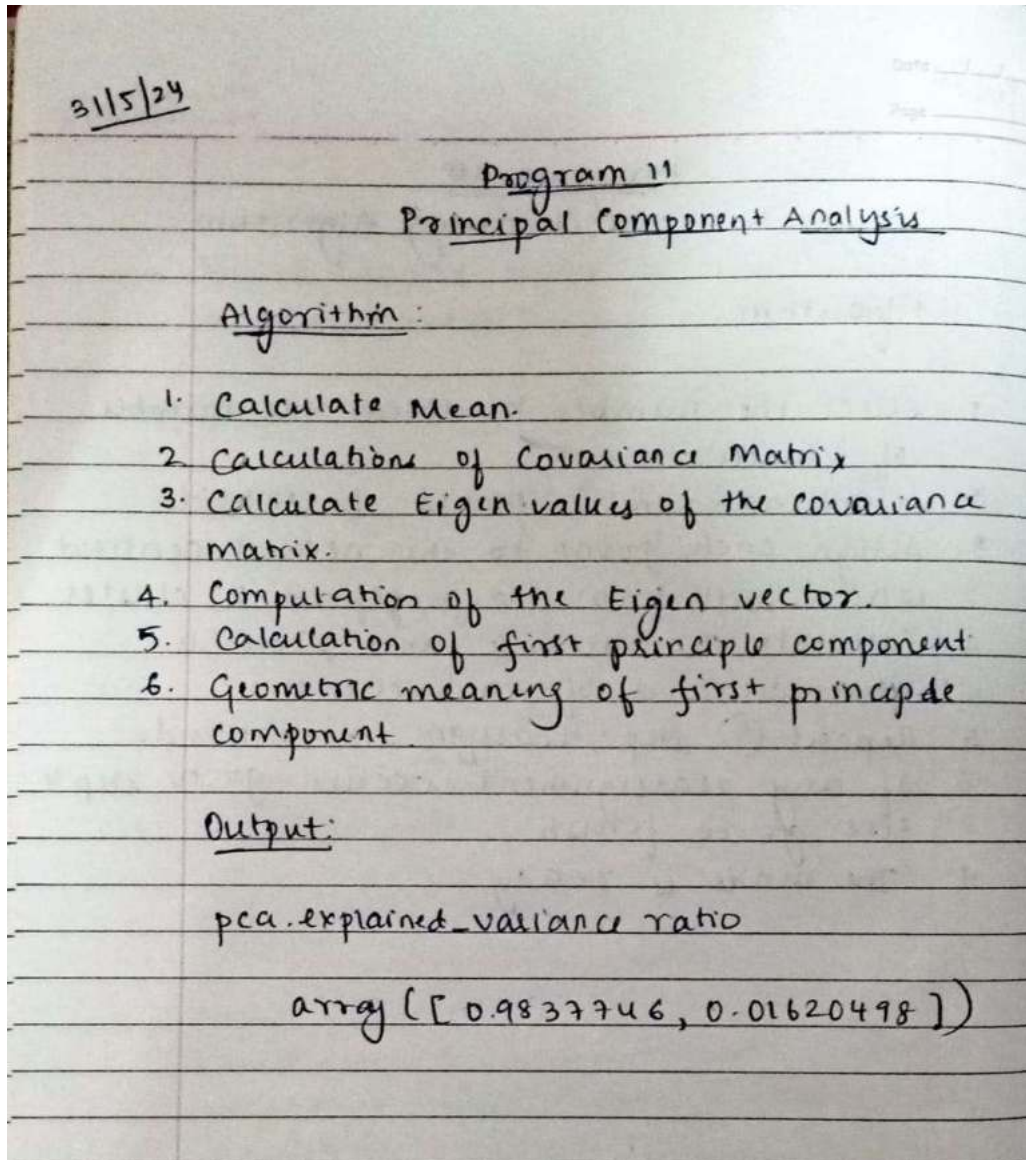 Date
Page
31/5/24
Program 11
Principal Component Analysis
Algorithm :
1. Calculate Mean.
2 Calculations of Covariance Matrix
3. Calculate Eigen values of the covariance
matrix.
4. Computation of the Eigen vector.
5. Calculation of first principle component
6. Geometric meaning of first principle
component.
Output:
pca.explained_variance ratio
array ([0.9837746, 0.01620498])